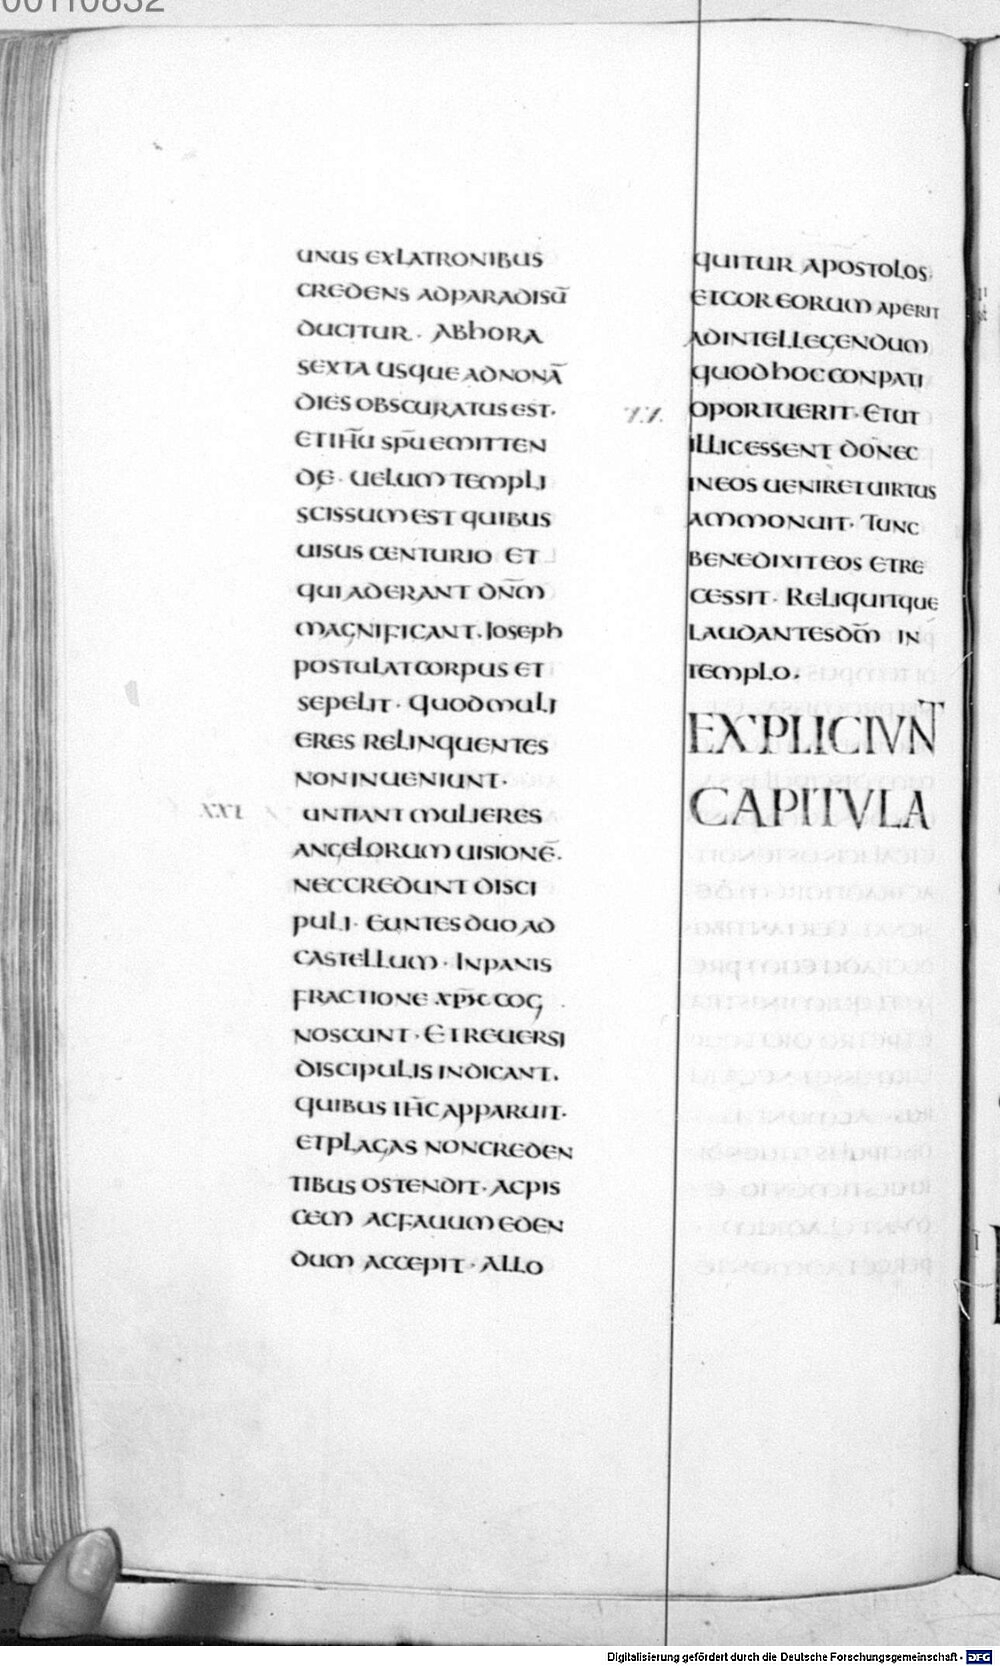 00110832
UNUS EXLATRONIBUS
CREDENS ADPARADISŪ
DUCITUR · ABHORA
SEXTA USQUE ADNONĀ
DIES OBSCURATUS EST·
ETIHŪ SPŪ EMITTEN
DE · UELUM TEMPLI
SCISSUMEST QUIBUS
UISUS CENTURIO ET
QUI ADERANT DN̄M
MAGNIFICANT. JOSEPH
POSTULAT CORPUS ET
SEPELIT · QUOD MULI
ERES RELINQUENTES
NON INUENIUNT·
XXI UNTIANT MULIERES
ANGELORUM UISIONĒ·
NECCREDUNT DISCI
PULI · EUNTES DUO AD
CASTELLUM · INPANIS
FRACTIONE XPM̄ COG
NOSCUNT · ET REUERSI
DISCIPULIS INDICANT.
QUIBUS IHC̄ APPARUIT·
ETPLAGAS NONCREDEN
TIBUS OSTENDIT · ACPIS
CEM ACFAUUM EDEN
DUM ACCEPIT · ALLO
QUITUR APOSTOLOS
ETCOR EORUM APERIT
ADINTELLEGENDUM
QUOD HOC CONPATI
OPORTUERIT · ET UT
ILLIC ESSENT DONEC
INEOS UENIRET UIRTUS
AMMONUIT · TUNC
BENEDIXIT EOS ET RE
CESSIT · RELIQUITQUE
LAUDANTES DM̄ IN
TEMPLO.
EXPLICIUN̄T
CAPITULA
Digitalisierung gefördert durch die Deutsche Forschungsgemeinschaft - DFG